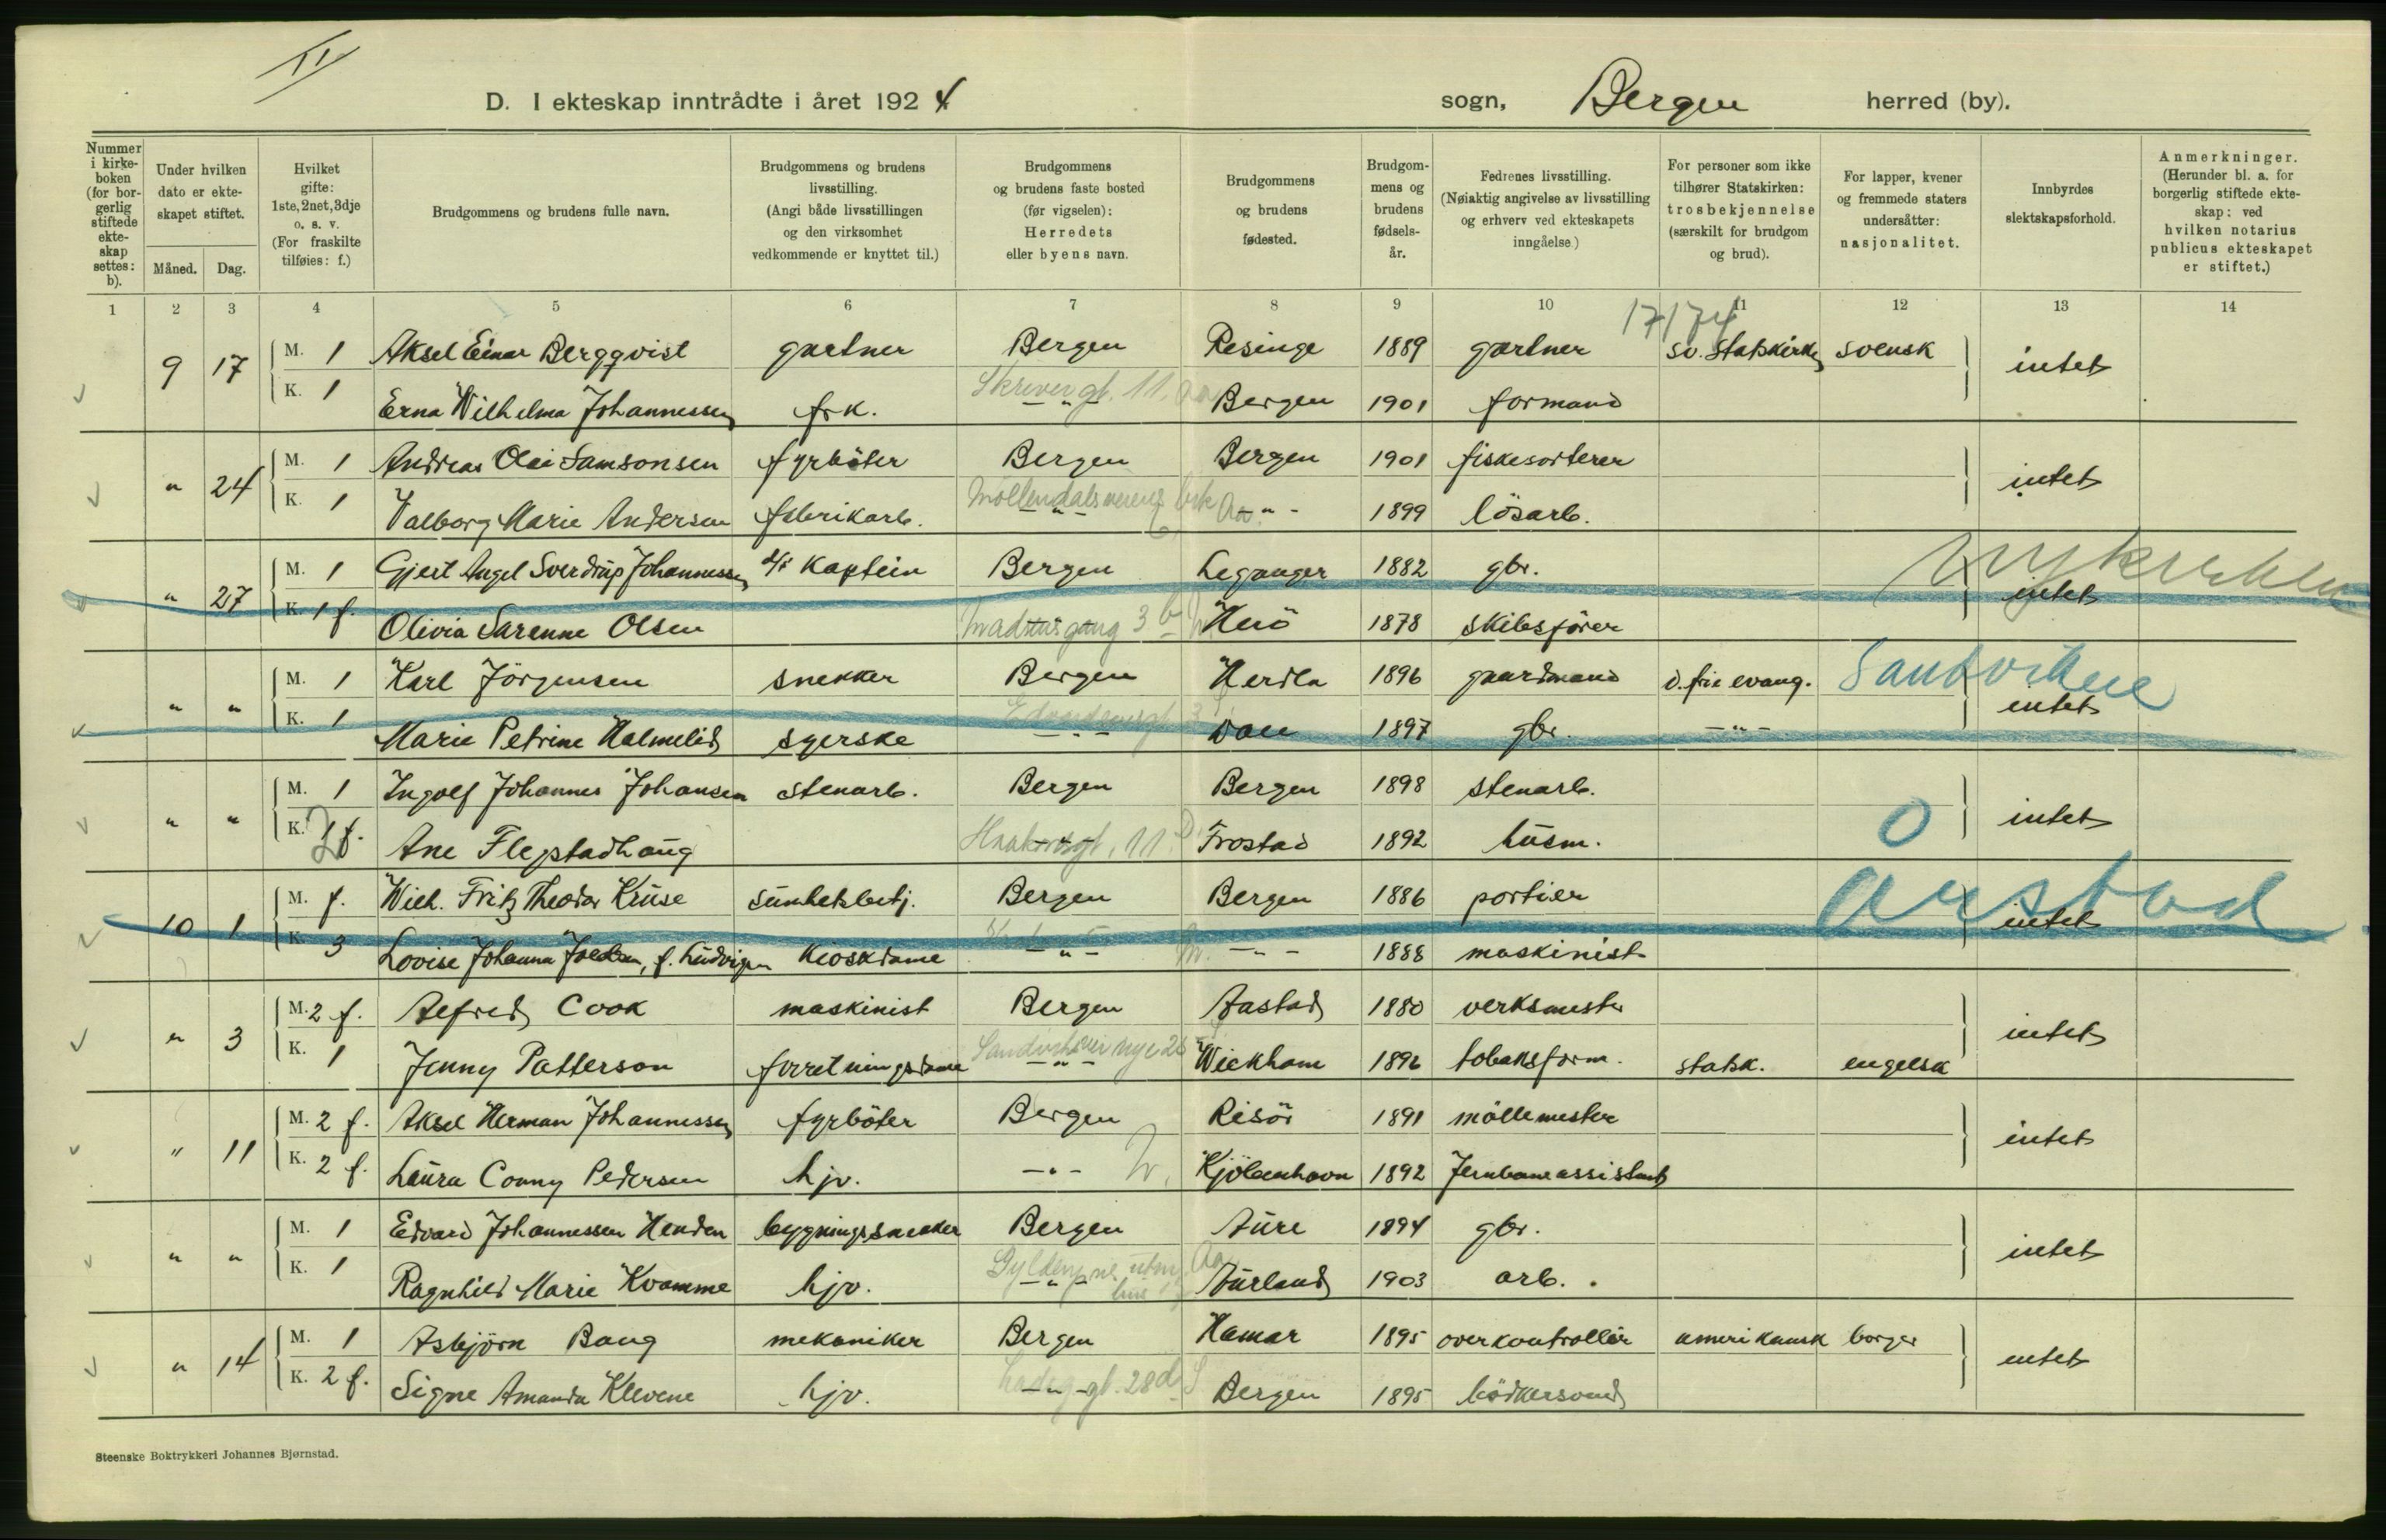 VI
D. I ekteskap inntrådte i året 1924 sogn, Bergen herred (by).
Nummer i kirkeboken (for borgerlig stiftede ekteskap settes: b).
Under hvilken dato er ekteskapet stiftet.
Måned. Dag.
Hvilket gifte: 1ste, 2net, 3dje o. s. v. (For fraskilte tilføies: f.)
Brudgommens og brudens fulle navn.
Brudgommens og brudens livsstilling. (Angi både livsstillingen og den virksomhet vedkommende er knyttet til.)
Brudgommens og brudens faste bosted (før vigselen): Herredets eller byens navn.
Brudgommens og brudens fødested.
Brudgommens og brudens fødselsår.
Fedrenes livsstilling. (Nøiaktig angivelse av livsstilling og erhverv ved ekteskapets inngåelse.)
For personer som ikke tilhører Statskirken: trosbekjennelse (særskilt for brudgom og brud).
For lapper, kvener og fremmede staters undersåtter: nasjonalitet.
Innbyrdes slektskapsforhold.
Anmerkninger. (Herunder bl. a. for borgerlig stiftede ekteskap: ved hvilken notarius publicus ekteskapet er stiftet.)
1 2 3 4 5 6 7 8 9 10 11 12 13 14
17/174
9 17 M. 1 Aksel Einar Bergqvist gartner Bergen Resinge 1889 gartner sv. Statskirke svensk intet
K. 1 Erna Wilhelma Johannessen frk. Skriverg. 11. Aa -"- Bergen 1901 formand
" 24 M. 1 Andreas Olai Samsonsen fyrböter Bergen Bergen 1901 fiskesorterer intet
K. 1 Valborg Marie Andersen fabrikarb. -"- Aa. -"- 1899 lösarb.
" 27 M. 1 Gjert Angel Sverdrup Johannessen d/s Kaptein Bergen Leganger 1882 gbr. intet Nykirken
K. 1 f. Olivia Sarenne Olsen -"- Herö 1878 skibsförer
" " M. 1 Karl Jörgensen snekker Bergen Herdla 1896 gaardmand d. frie evang. intet Sandviken
K. 1 Marie Petrine Halmelid syerske -"- Dale 1897 gbr. -"-
" " M. 1 Ingolf Johannes Johansen stenarb. Bergen Bergen 1898 stenarb. O intet
K. 2 f. Ane Flegstadhaug Haakonsgt. 11. D. -"- Frostad 1892 husm.
10 1 M. f. Wilh. Fritz Theodor Kruse sunhetsbetj. Bergen Bergen 1886 portier intet Årstad
K. 3 Lovise Johanna , f. Ludvigsen kioskdame -"- -"- 1888 maskinist
" 3 M. 2 f. Alfred Cook maskinist Bergen Aastad 1880 verksmester intet
K. 1 Jenny Patterson forretningsdame -"- Wickham 1896 tobaksform. statsk. engelsk
" 11 M. 2 f. Aksel Herman Johannessen fyrböter Bergen Risör 1891 möllemester intet
K. 2 f. Laura Conny Pedersen hjv. -"- Kjöbenhavn 1892 Jernbaneassistent
" " M. 1 Edvard Johannessen Henden bygningssnekker Bergen Aure 1894 gbr. intet
K. 1 Ragnhild Marie Kvamme hjv. -"- Aa Aurland 1903 arb.
" 14 M. 1 Asbjörn Bang mekaniker Bergen Hamar 1895 overkontrollör amerikansk borger intet
K. 2 f. Signe Amanda Klevene hjv. -"- 28d Bergen 1895 bödkersvend
Steenske Boktrykkeri Johannes Bjørnstad.